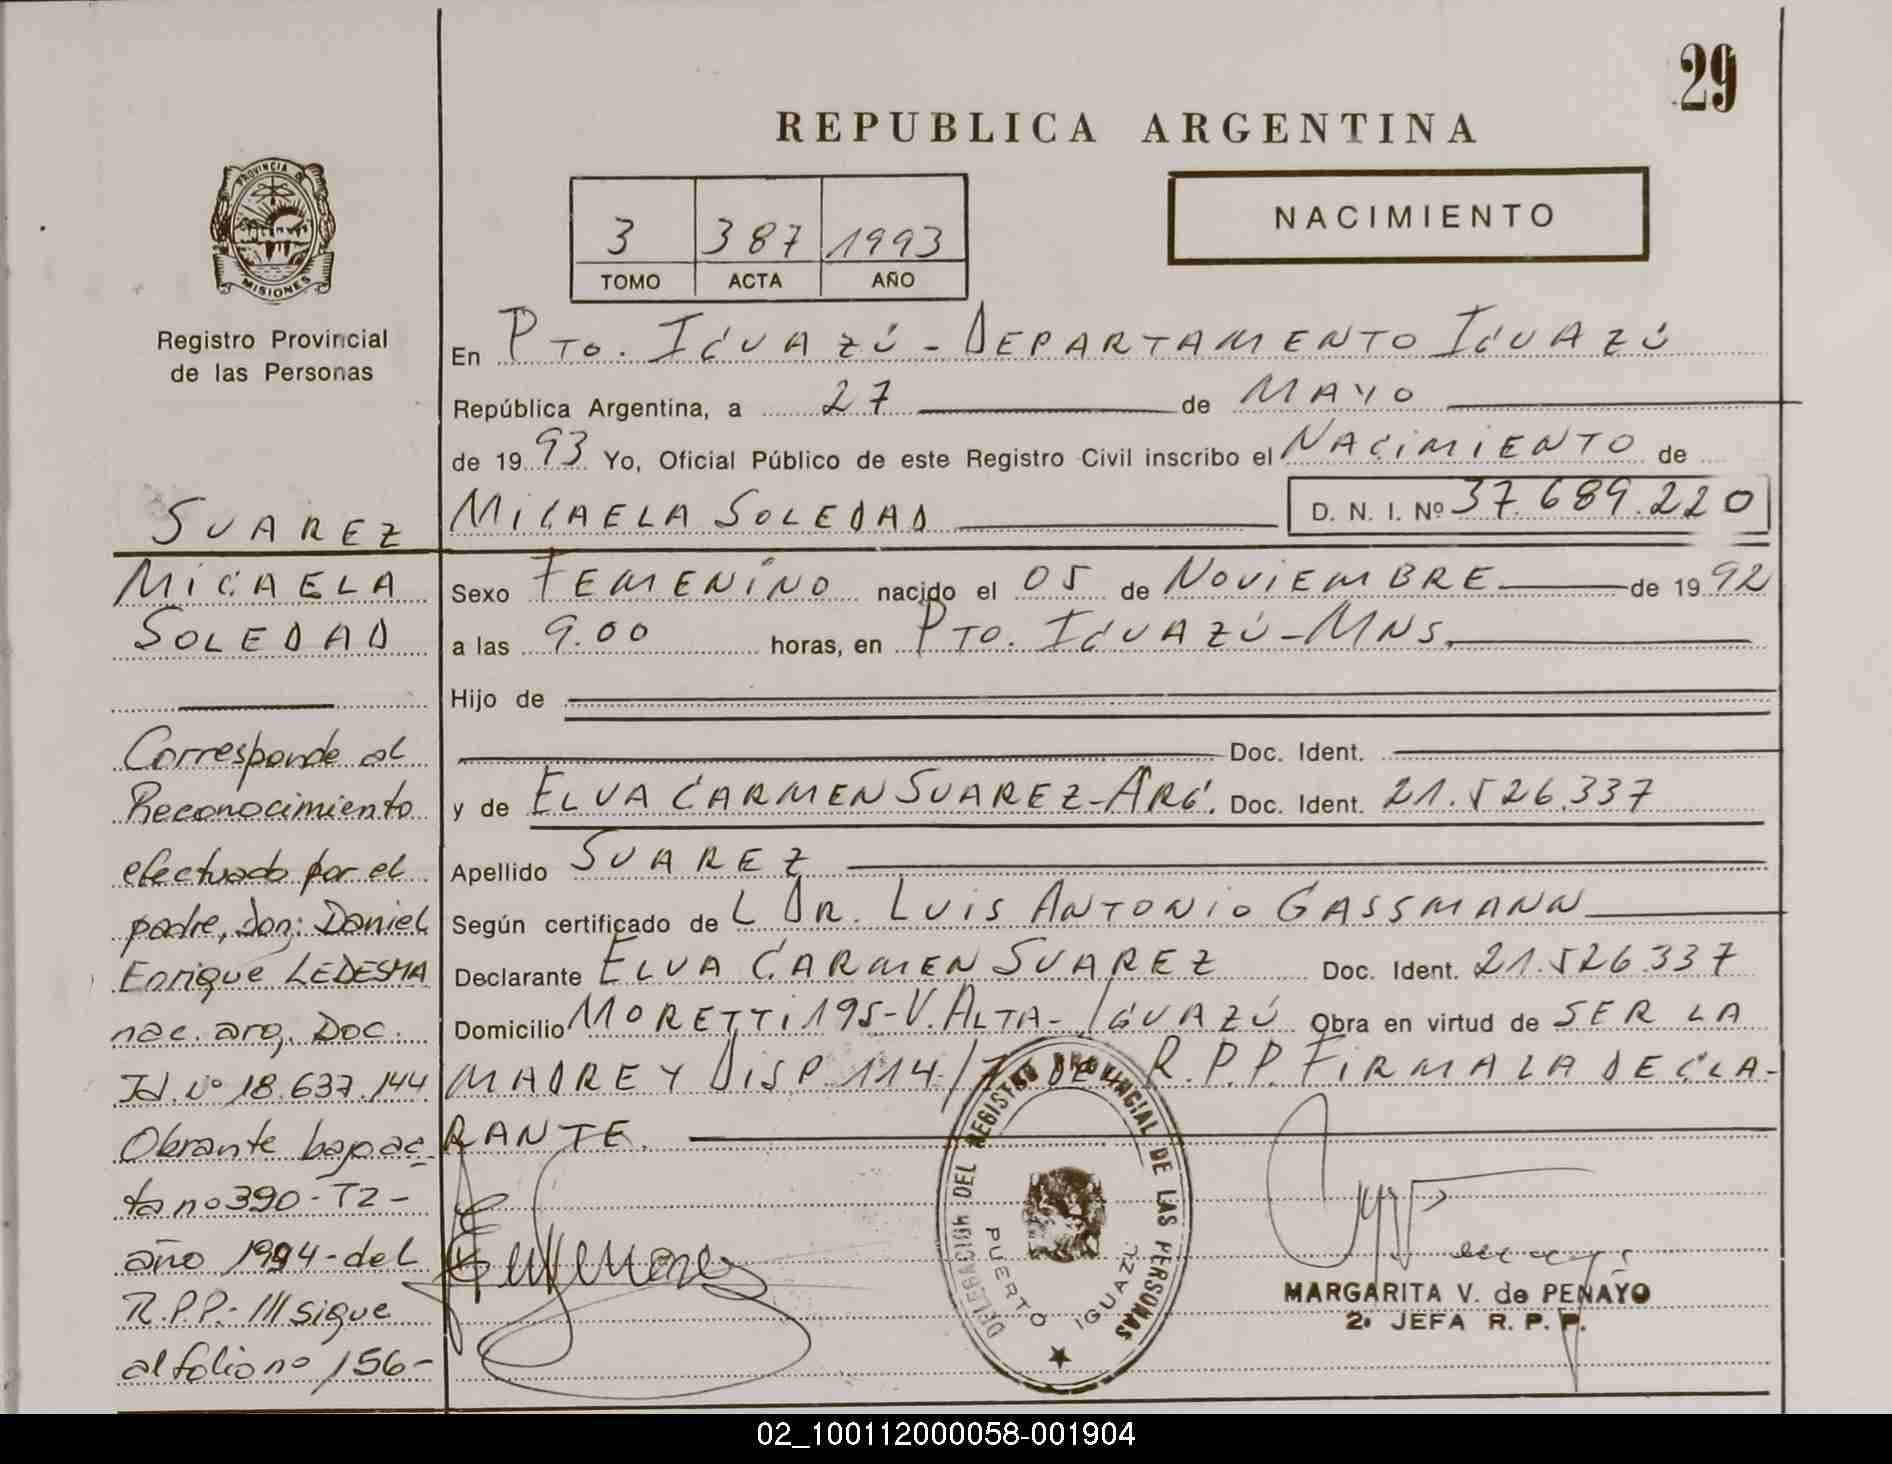 29
REPUBLICA ARGENTINA
PROVINCIA DE
MISIONES
Registro Provincial
de las Personas
3 387 1993
TOMO ACTA AÑO
NACIMIENTO
En PTO. IGUAZÚ - DEPARTAMENTO IGUAZÚ
República Argentina, a 27 de MAYO
de 19 93 Yo, Oficial Público de este Registro Civil inscribo el NACIMIENTO de
MICAELA SOLEDAD D. N. I. Nº 37.689.220
Sexo FEMENINO nacido el 05 de NOVIEMBRE de 19 92
a las 9.00 horas, en PTO. IGUAZÚ - MNS.
Hijo de
Doc. Ident.
y de ELVA CARMEN SUAREZ - ARG. Doc. Ident. 21.526.337
Apellido SUAREZ
Según certificado de L DR. LUIS ANTONIO GASSMANN
Declarante ELVA CARMEN SUAREZ Doc. Ident. 21.526.337
Domicilio MORETTI 195 - V. ALTA - IGUAZÚ Obra en virtud de SER LA
MADRE Y DISP 114/7 DEL R.P.P. FIRMA LA DECLA-
RANTE.
SUAREZ
MICAELA
SOLEDAD
Corresponde al
Reconocimiento
efectuado por el
padre, don: Daniel
Enrique LEDESMA
nac. arg. Doc.
Id. Nº 18.637.144
Obrante bajo ac-
ta nº 390 - T2 -
año 1994 - del
R.P.P. - /// sigue
al folio nº 156 -
DELEGACION DEL REGISTRO PROVINCIAL DE LAS PERSONAS
PUERTO IGUAZU
MARGARITA V. de PENAYO
2ª JEFA R. P. P.
02_100112000058-001904